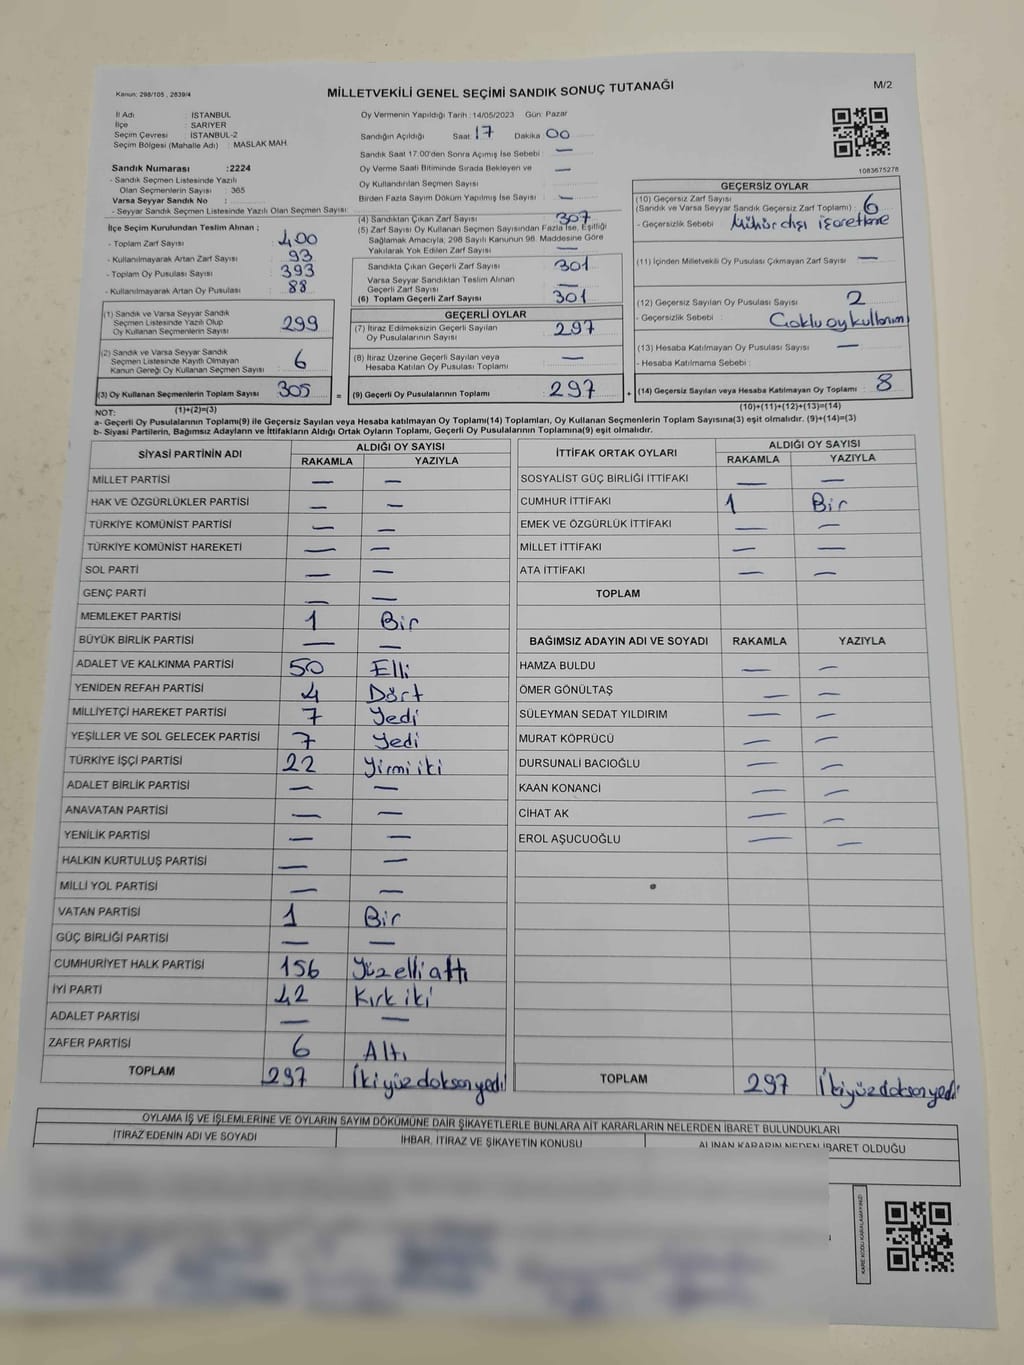 Kanun: 298/105 , 2839/4
MİLLETVEKİLİ GENEL SEÇİMİ SANDIK SONUÇ TUTANAĞI
M/2
İl Adı : İSTANBUL
İlçe : SARIYER
Seçim Çevresi : İSTANBUL-2
Seçim Bölgesi (Mahalle Adı) : MASLAK MAH.
Sandık Numarası :2224
- Sandık Seçmen Listesinde Yazılı
Olan Seçmenlerin Sayısı : 365
Varsa Seyyar Sandık No :
- Seyyar Sandık Seçmen Listesinde Yazılı Olan Seçmen Sayısı:
İlçe Seçim Kurulundan Teslim Alınan ;
- Toplam Zarf Sayısı 400
- Kullanılmayarak Artan Zarf Sayısı 93
- Toplam Oy Pusulası Sayısı 393
- Kullanılmayarak Artan Oy Pusulası 88
(1) Sandık ve Varsa Seyyar Sandık
Seçmen Listesinde Yazılı Olup
Oy Kullanan Seçmenlerin Sayısı 299
(2) Sandık ve Varsa Seyyar Sandık
Seçmen Listesinde Kayıtlı Olmayan
Kanun Gereği Oy Kullanan Seçmen Sayısı 6
(3) Oy Kullanan Seçmenlerin Toplam Sayısı 305 =
(1)+(2)=(3)
Oy Vermenin Yapıldığı Tarih : 14/05/2023 Gün: Pazar
Sandığın Açıldığı Saat 17 Dakika 00
Sandık Saat 17:00'den Sonra Açımış İse Sebebi : —
Oy Verme Saati Bitiminde Sırada Bekleyen ve
Oy Kullandırılan Seçmen Sayısı —
Birden Fazla Sayım Döküm Yapılmış İse Sayısı : —
(4) Sandıktan Çıkan Zarf Sayısı 307
(5) Zarf Sayısı Oy Kullanan Seçmen Sayısından Fazla İse, Eşitliği
Sağlamak Amacıyla; 298 Sayılı Kanunun 98. Maddesine Göre
Yakılarak Yok Edilen Zarf Sayısı —
Sandıkta Çıkan Geçerli Zarf Sayısı 301
Varsa Seyyar Sandıktan Teslim Alınan
Geçerli Zarf Sayısı —
(6) Toplam Geçerli Zarf Sayısı 301
GEÇERLİ OYLAR
(7) İtiraz Edilmeksizin Geçerli Sayılan
Oy Pusulalarının Sayısı: 297
(8) İtiraz Üzerine Geçerli Sayılan veya
Hesaba Katılan Oy Pusulası Toplamı —
(9) Geçerli Oy Pusulalarının Toplamı 297 +
1083675278
GEÇERSİZ OYLAR
(10) Geçersiz Zarf Sayısı
(Sandık ve Varsa Seyyar Sandık Geçersiz Zarf Toplamı) : 6
- Geçersizlik Sebebi : Mühür dışı işaretleme
(11) İçinden Milletvekili Oy Pusulası Çıkmayan Zarf Sayısı —
(12) Geçersiz Sayılan Oy Pusulası Sayısı 2
- Geçersizlik Sebebi : Çoklu oy kullanımı
(13) Hesaba Katılmayan Oy Pusulası Sayısı —
- Hesaba Katılmama Sebebi :
(14) Geçersiz Sayılan veya Hesaba Katılmayan Oy Toplamı : 8
(10)+(11)+(12)+(13)=(14)
NOT:
a- Geçerli Oy Pusulalarının Toplamı(9) ile Geçersiz Sayılan veya Hesaba katılmayan Oy Toplamı(14) Toplamları, Oy Kullanan Seçmenlerin Toplam Sayısına(3) eşit olmalıdır. (9)+(14)=(3)
b- Siyasi Partilerin, Bağımsız Adayların ve İttifakların Aldığı Ortak Oyların Toplamı, Geçerli Oy Pusulalarının Toplamına(9) eşit olmalıdır.
SİYASİ PARTİNİN ADI ALDIĞI OY SAYISI
RAKAMLA YAZIYLA
MİLLET PARTİSİ — —
HAK VE ÖZGÜRLÜKLER PARTİSİ — —
TÜRKİYE KOMÜNİST PARTİSİ — —
TÜRKİYE KOMÜNİST HAREKETİ — —
SOL PARTİ — —
GENÇ PARTİ — —
MEMLEKET PARTİSİ 1 Bir
BÜYÜK BİRLİK PARTİSİ — —
ADALET VE KALKINMA PARTİSİ 50 Elli
YENİDEN REFAH PARTİSİ 4 Dört
MİLLİYETÇİ HAREKET PARTİSİ 7 Yedi
YEŞİLLER VE SOL GELECEK PARTİSİ 7 Yedi
TÜRKİYE İŞÇİ PARTİSİ 22 Yirmi iki
ADALET BİRLİK PARTİSİ — —
ANAVATAN PARTİSİ — —
YENİLİK PARTİSİ — —
HALKIN KURTULUŞ PARTİSİ — —
MİLLİ YOL PARTİSİ — —
VATAN PARTİSİ 1 Bir
GÜÇ BİRLİĞİ PARTİSİ — —
CUMHURİYET HALK PARTİSİ 156 Yüz elli altı
İYİ PARTİ 42 Kırk iki
ADALET PARTİSİ — —
ZAFER PARTİSİ 6 Altı
TOPLAM 297 İki yüz doksan yedi
İTTİFAK ORTAK OYLARI ALDIĞI OY SAYISI
RAKAMLA YAZIYLA
SOSYALİST GÜÇ BİRLİĞİ İTTİFAKI — —
CUMHUR İTTİFAKI 1 Bir
EMEK VE ÖZGÜRLÜK İTTİFAKI — —
MİLLET İTTİFAKI — —
ATA İTTİFAKI — —
TOPLAM
BAĞIMSIZ ADAYIN ADI VE SOYADI RAKAMLA YAZIYLA
HAMZA BULDU — —
ÖMER GÖNÜLTAŞ — —
SÜLEYMAN SEDAT YILDIRIM — —
MURAT KÖPRÜCÜ — —
DURSUNALİ BACIOĞLU — —
KAAN KONANCİ — —
CİHAT AK — —
EROL AŞUCUOĞLU — —
TOPLAM 297 İki yüz doksan yedi
OYLAMA İŞ VE İŞLEMLERİNE VE OYLARIN SAYIM DÖKÜMÜNE DAİR ŞİKAYETLERLE BUNLARA AİT KARARLARIN NELERDEN İBARET BULUNDUKLARI
İTİRAZ EDENİN ADI VE SOYADI İHBAR, İTİRAZ VE ŞİKAYETİN KONUSU ALINAN KARARIN NEDEN İBARET OLDUĞU
KARE KODU KARALAMAYINIZ!